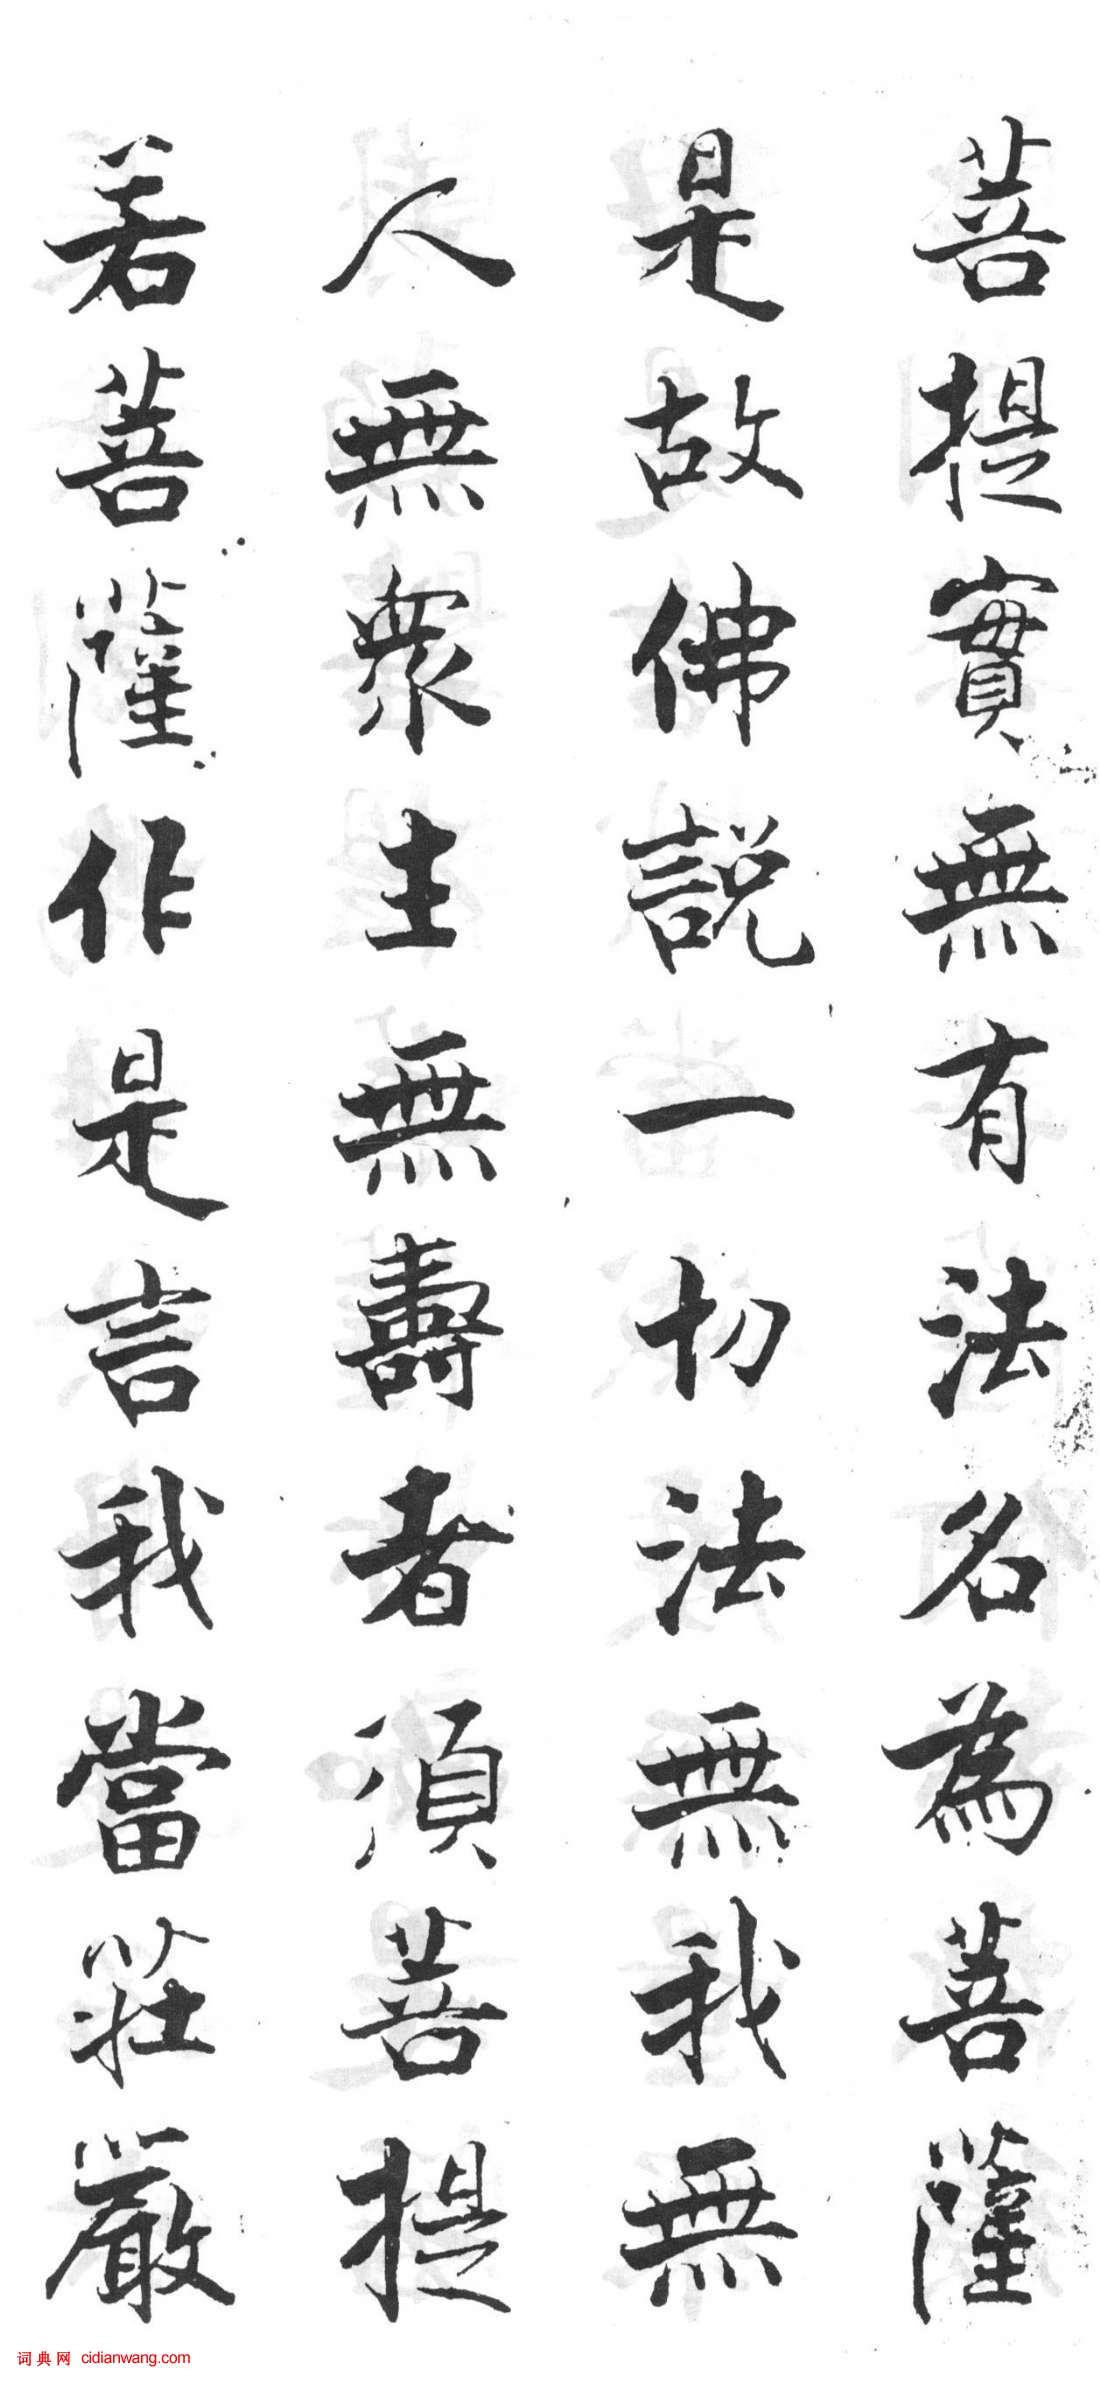 菩提實無有法名為菩薩
是故佛說一切法無我無
人無衆生無壽者須菩提
若菩薩作是言我當莊嚴
词典网 cidianwang.com